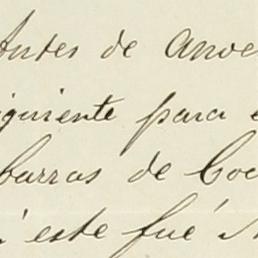 Antes de
siguiente para
barras de
este fué